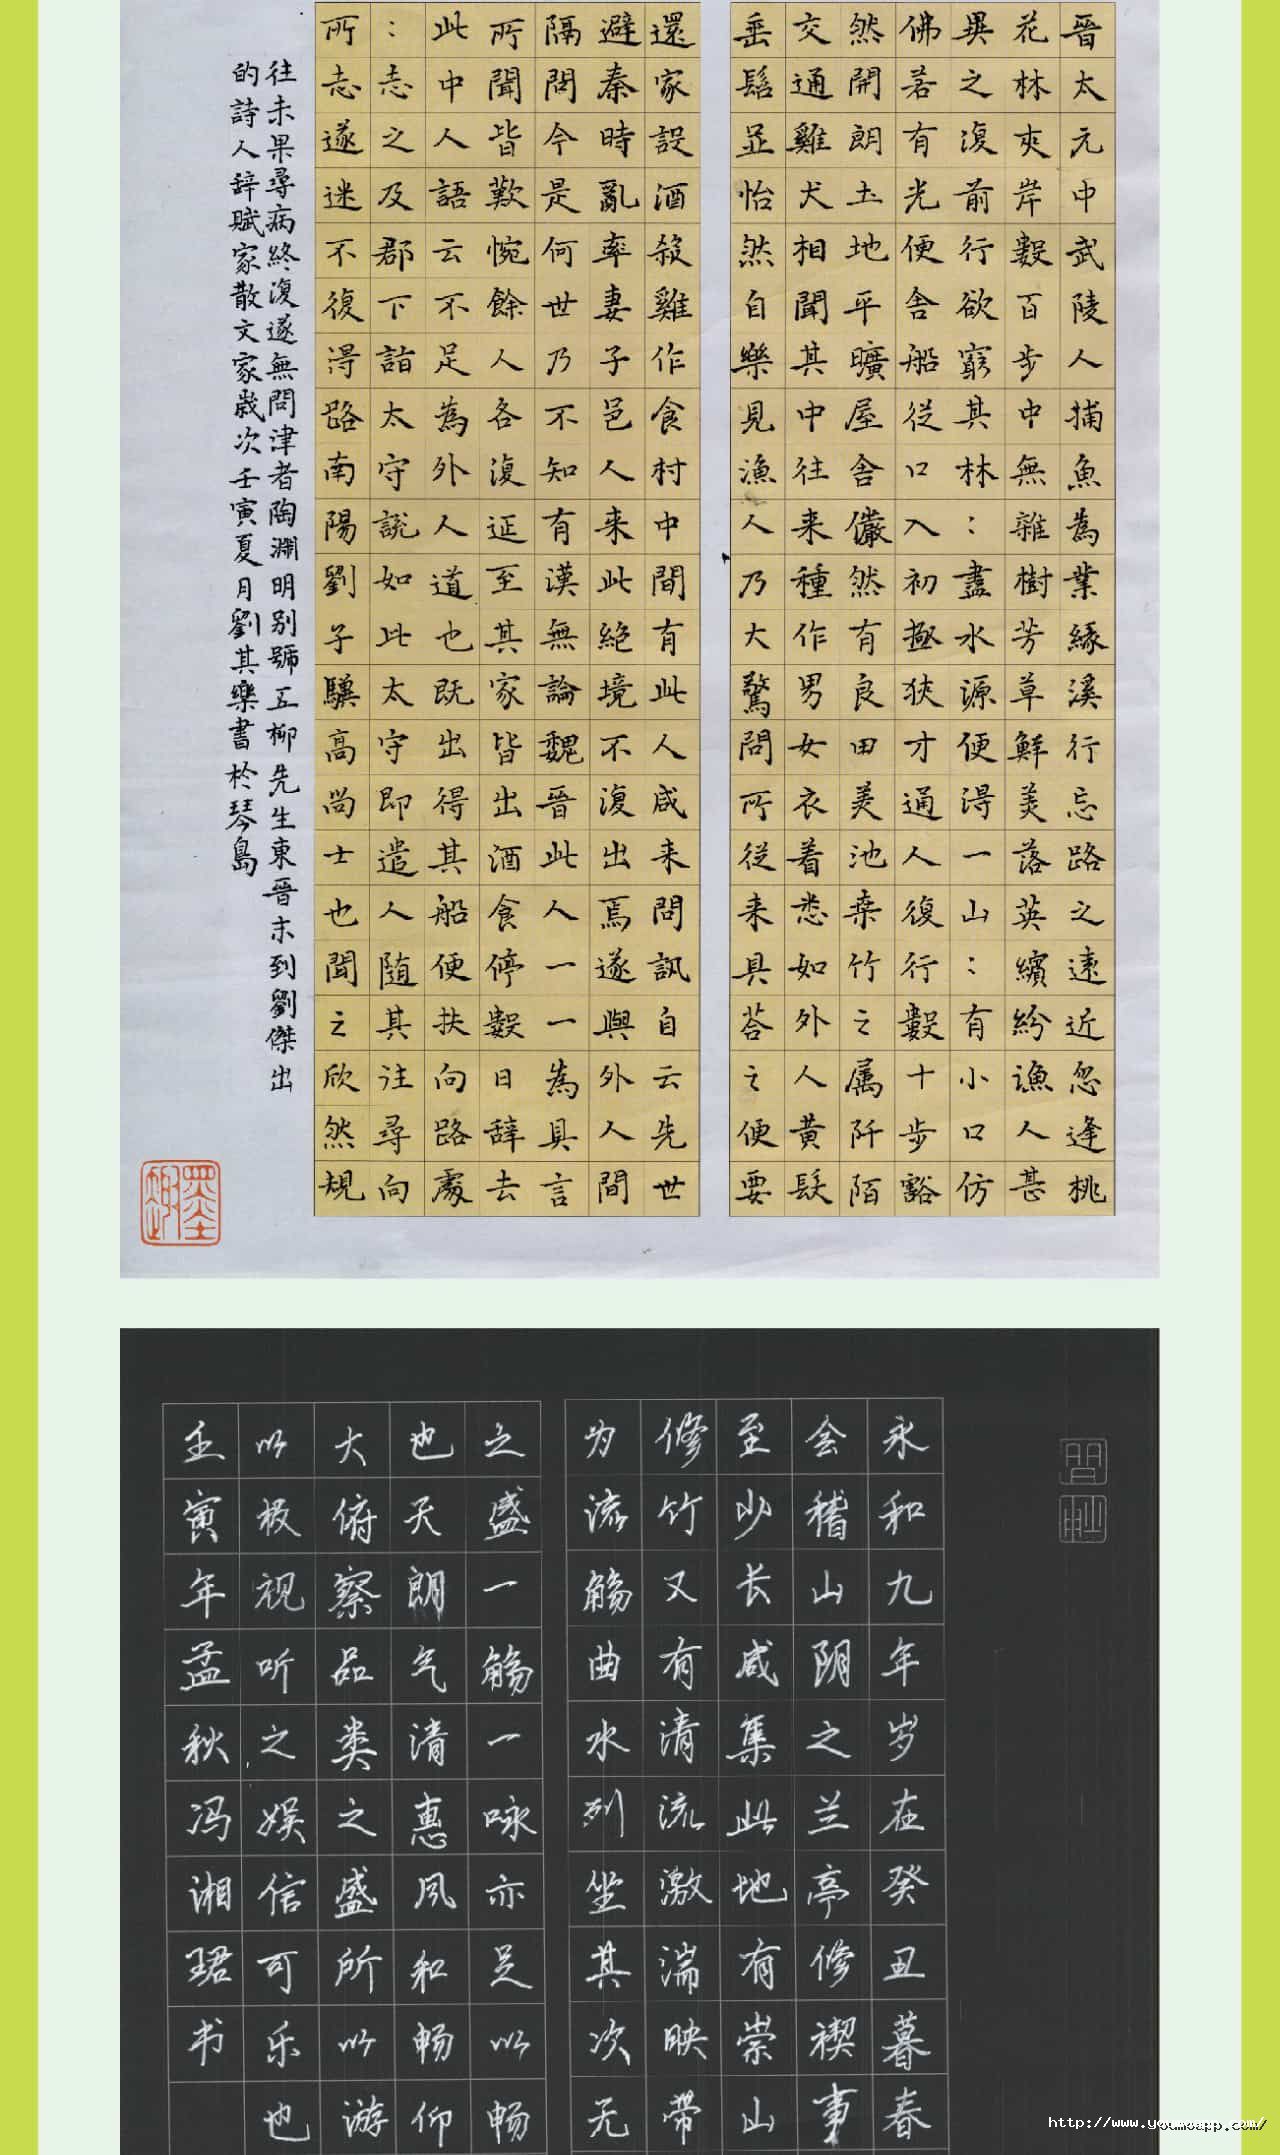 晋太元中武陵人捕魚為業緣溪行忘路之遠近忽逢桃
花林夾岸數百步中無雜樹芳草鮮美落英繽紛漁人甚
異之復前行欲窮其林：盡水源便得一山：有小口仿
佛若有光便舍船從口入初極狹才通人復行數十步豁
然開朗土地平曠屋舍儼然有良田美池桑竹之属阡陌
交通雞犬相聞其中往来種作男女衣着悉如外人黄髮
垂髫並怡然自樂見漁人乃大驚問所從来具荅之便要
還家設酒殺雞作食村中聞有此人咸来問訊自云先世
避秦時亂率妻子邑人来此絕境不復出焉遂與外人間
隔問今是何世乃不知有漢無論魏晋此人一一為具言
所聞皆歎惋餘人各復延至其家皆出酒食停數日辞去
此中人語云不足為外人道也既出得其船便扶向路處
：志之及郡下詣太守説如此太守即遣人随其往尋向
所志遂迷不復得路南陽劉子驥高尚士也聞之欣然規
往未果尋病終復遂無問津者陶淵明别號五柳先生東晋末到劉傑出
的詩人辞賦家散文家歲次壬寅夏月劉其樂書於琴島
永和九年岁在癸丑暮春
会稽山阴之兰亭修禊事
至少长咸集此地有崇山
修竹又有清流激湍映带
为流觞曲水列坐其次无
之盛一觞一咏亦足以畅
也天朗气清惠风和畅仰
大俯察品类之盛所以游
以极视听之娱信可乐也
壬寅年孟秋冯湘珺书
http://www.youmoapp.com/